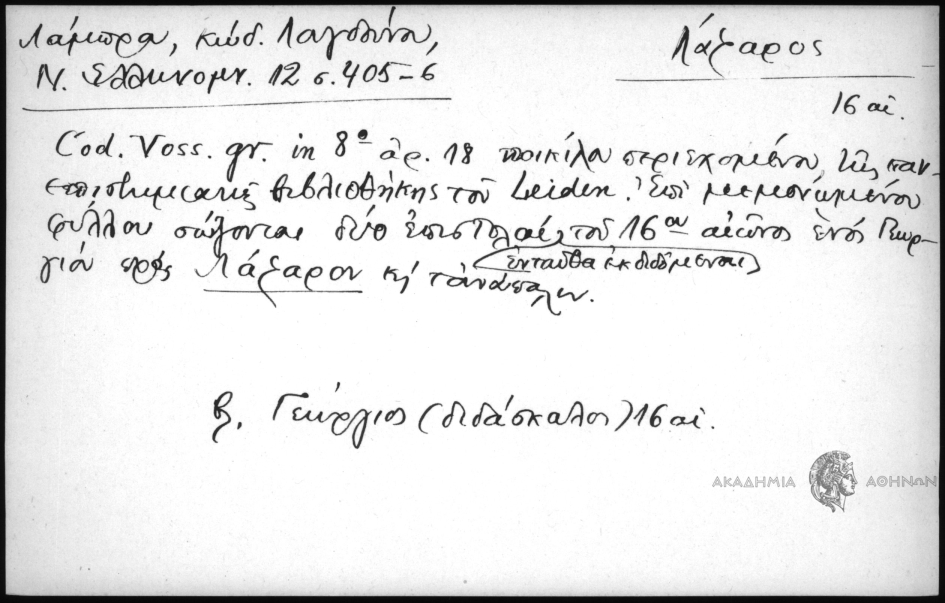 Λάμπρα, κώδ. Λαγδίνου,
Ν. Ελληνομν. 12 σ. 405-6
Λάζαρος
16 αἰ.
Cod. Voss. gr. in 8º ἀρ. 18 ποικίλα περιεχομένου, τῆς παν-
επιστημιακῆς βιβλιοθήκης τοῦ Leiden. Ἐπὶ μεμονωμένου
φύλλου σώζονται δύο ἐπιστολαί, τοῦ 16ου αἰῶνος ἑνός Γεωρ-
γίου πρός Λάζαρον κ τἀνάπαλιν.
ἐνταῦθα ἐκδιδόμεναι
β. Γεώργιος (διδάσκαλος) 16 αἰ.
ΑΚΑΔΗΜΙΑ ΑΘΗΝΩΝ